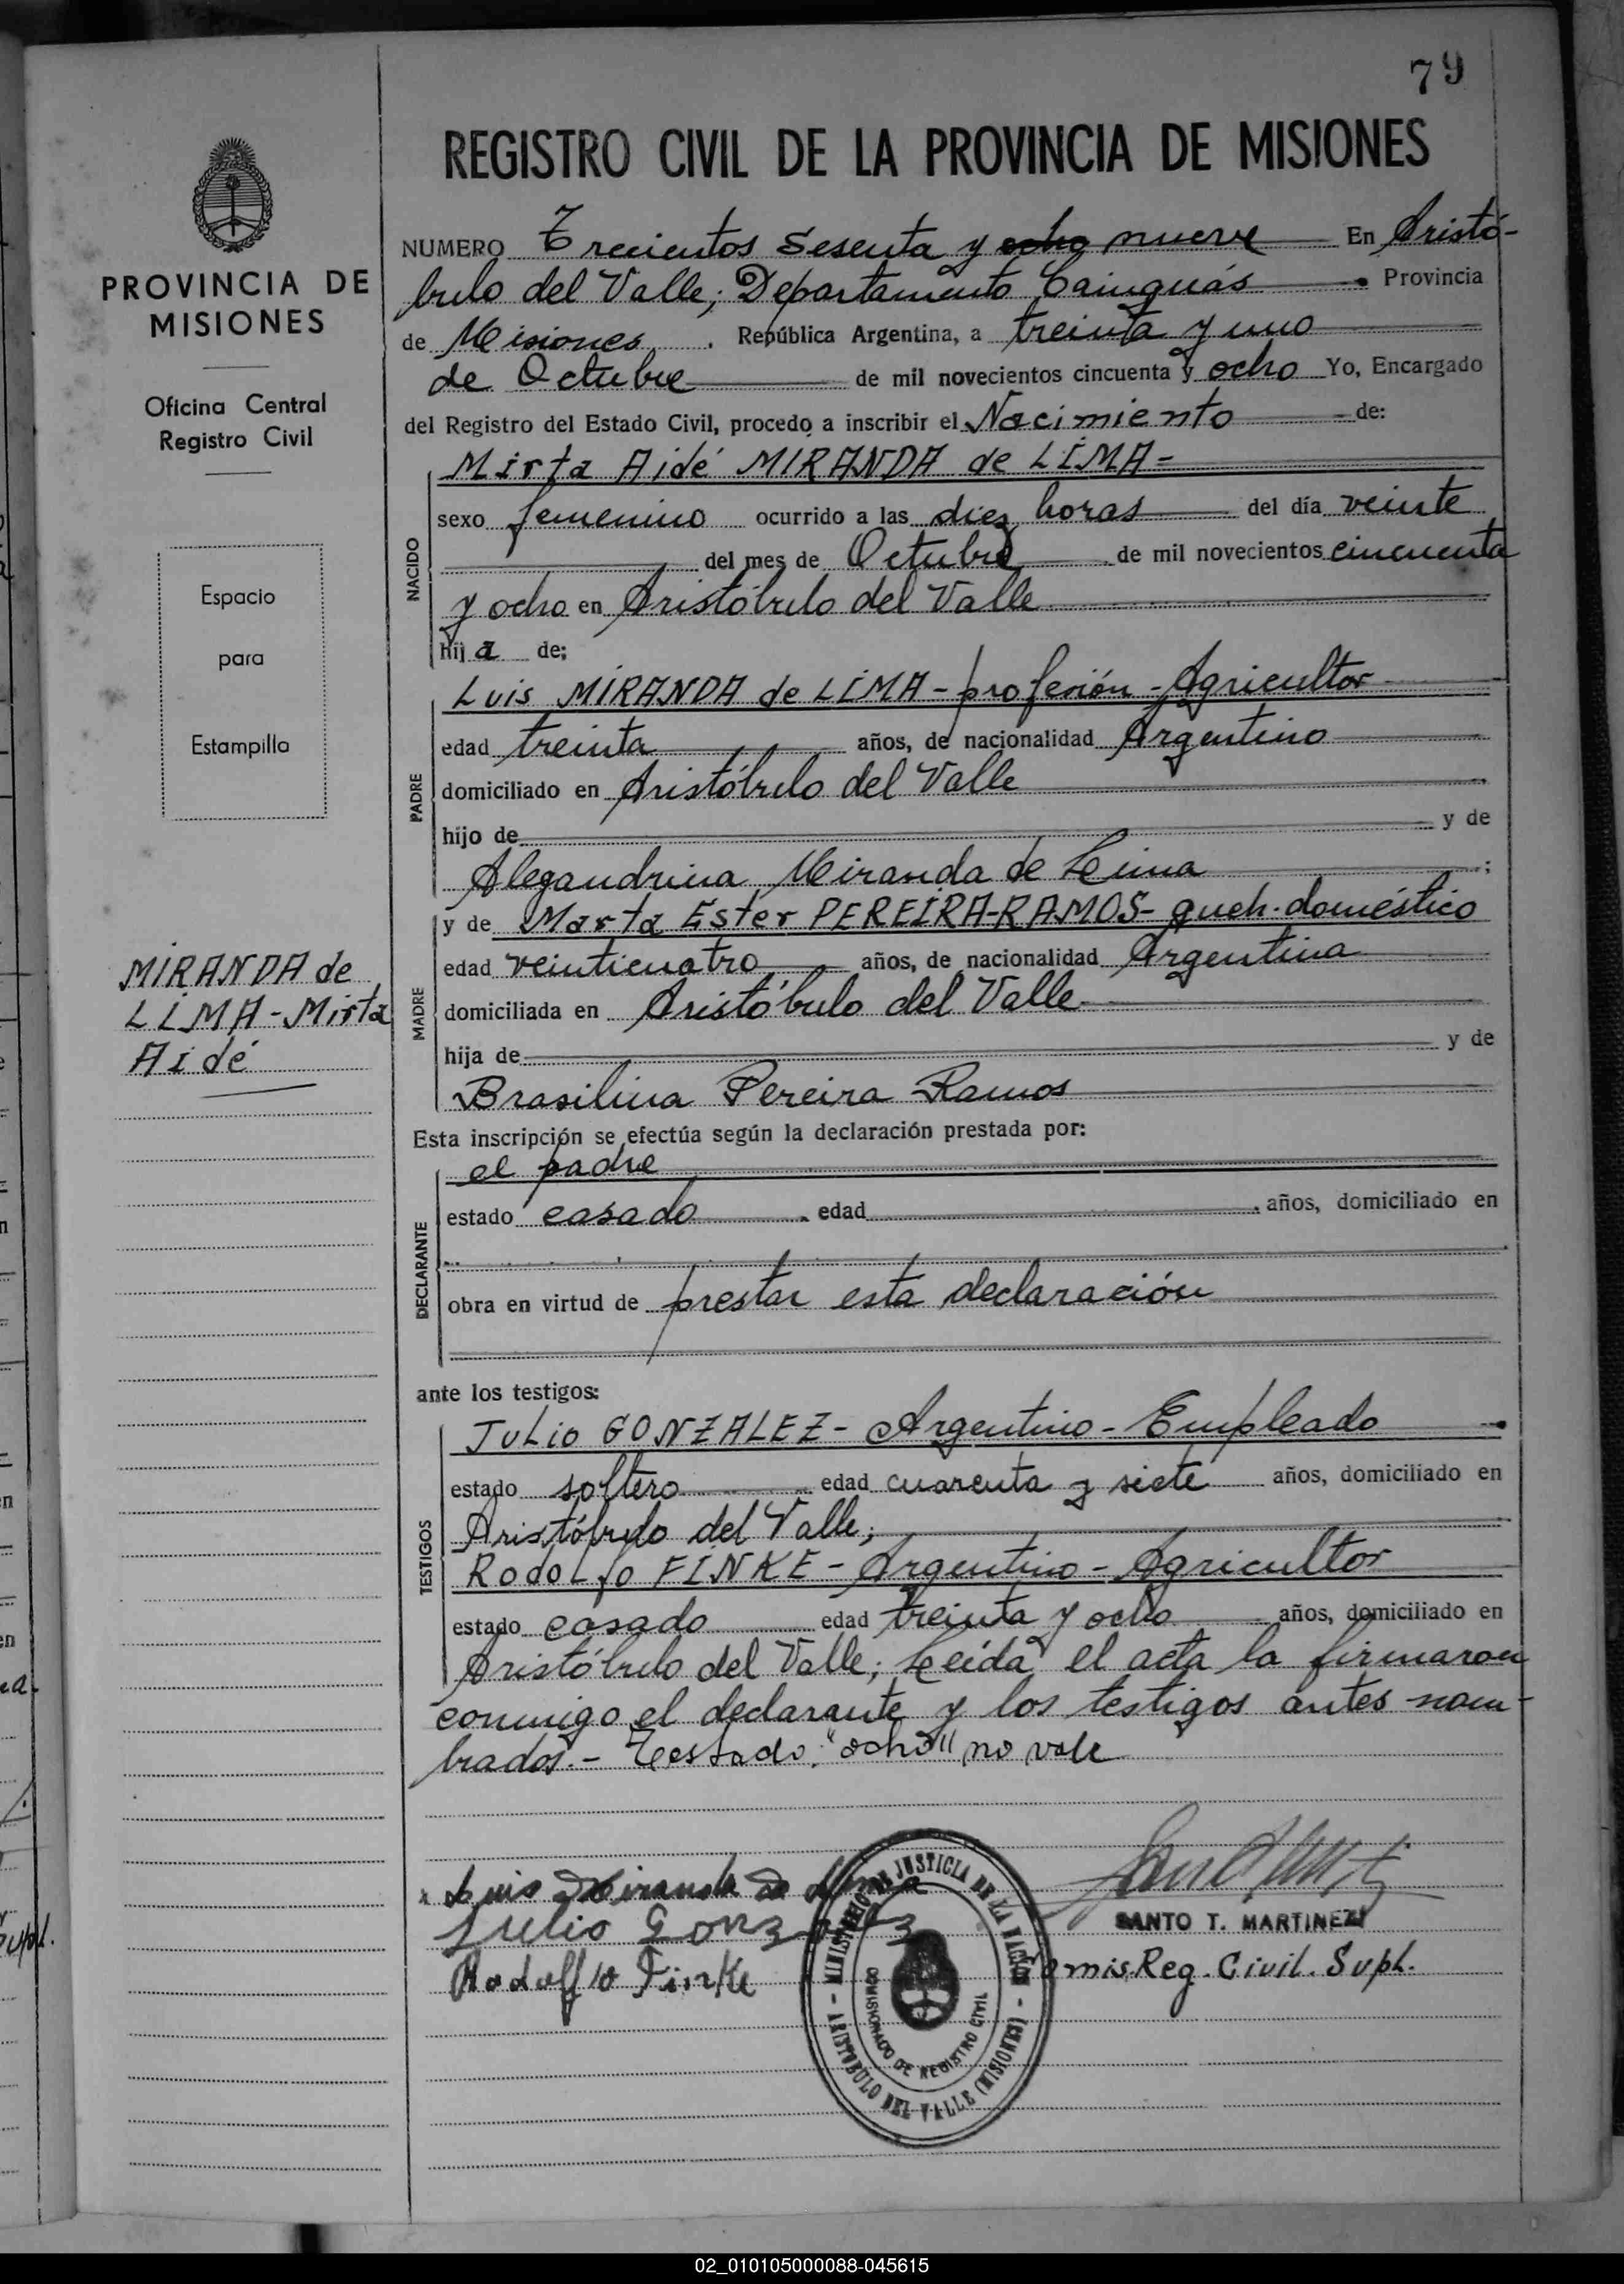 79
REGISTRO CIVIL DE LA PROVINCIA DE MISIONES
PROVINCIA DE
MISIONES
Oficina Central
Registro Civil
Espacio
para
Estampilla
MIRANDA de
LIMA - Mirta
Aidé
NUMERO Trecientos Sesenta y ocho nueve En Aristó-
bulo del Valle; Departamento Cainguás . Provincia
de Misiones . República Argentina, a treinta y uno
de Octubre de mil novecientos cincuenta y ocho Yo, Encargado
del Registro del Estado Civil, procedo a inscribir el Nacimiento de:
Mirta Aidé MIRANDA de LIMA -
NACIDO
sexo femenino ocurrido a las diez horas del día veinte
del mes de Octubre de mil novecientos cincuenta
y ocho en Aristóbulo del Valle
hija de;
PADRE
Luis MIRANDA de LIMA - profesión - Agricultor
edad treinta años, de nacionalidad Argentino
domiciliado en Aristóbulo del Valle
hijo de y de
Alegandrina Miranda de Lima ;
MADRE
y de Marta Ester PEREIRA-RAMOS - queh. doméstico
edad veinticuatro años, de nacionalidad Argentina
domiciliada en Aristóbulo del Valle
hija de y de
Brasilina Pereira Ramos
Esta inscripción se efectúa según la declaración prestada por:
DECLARANTE
el padre
estado casado . edad . años, domiciliado en
obra en virtud de prestar esta declaración
ante los testigos:
TESTIGOS
Julio GONZALEZ - Argentino - Empleado
estado soltero edad cuarenta y siete años, domiciliado en
Aristóbulo del Valle;
RODOLfo FINKE - Argentino - Agricultor
estado casado edad treinta y ocho años, domiciliado en
Aristóbulo del Valle; Leida el acta la firmaron
conmigo el declarante y los testigos antes nom-
brados.- Testado: "ocho" no vale
Luis Miranda de Lima
Julio Gonzalez
Rodolfo Finke
MINISTERIO DE JUSTICIA DE LA NACION
COMISIONADO DE REGISTRO CIVIL
- ARISTOBULO DEL VALLE (MISIONES) -
SANTO T. MARTINEZ
Comis. Reg. Civil. Supl.
02_010105000088-045615